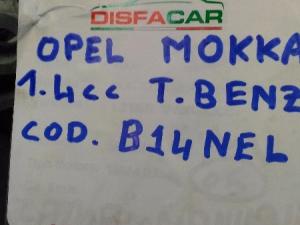 DISFACAR
OPEL MOKKA
1.4cc T.BENZ
COD. B14NEL